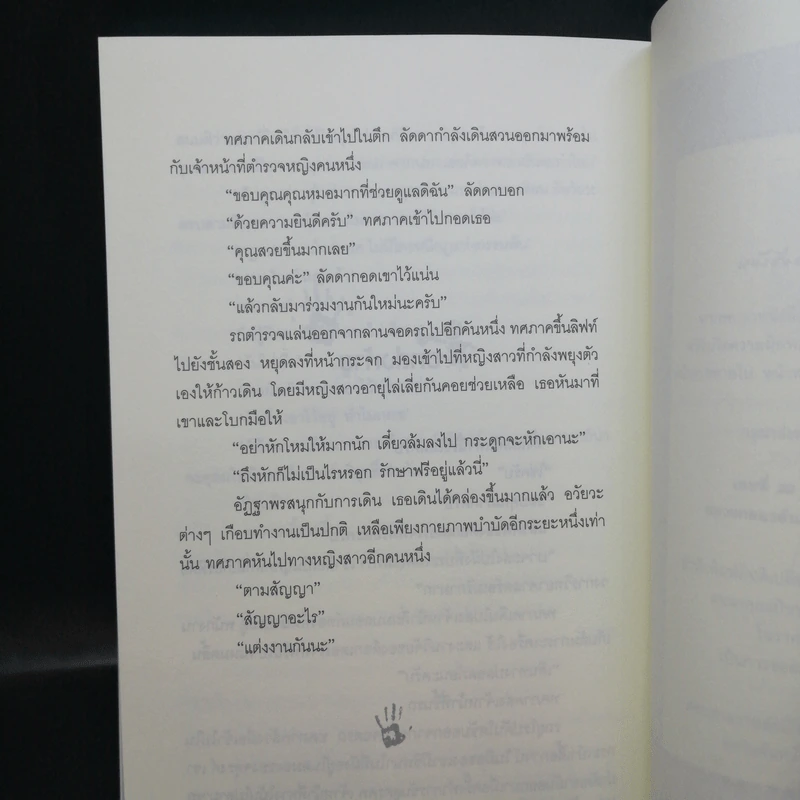 ทศภาคเดินกลับเข้าไปในตึก ลัดดากำลังเดินสวนออกมาพร้อม
กับเจ้าหน้าที่ตำรวจหญิงคนหนึ่ง
“ขอบคุณคุณหมอมากที่ช่วยดูแลดิฉัน” ลัดดาบอก
“ด้วยความยินดีครับ” ทศภาคเข้าไปกอดเธอ
“คุณสวยขึ้นมากเลย”
“ขอบคุณค่ะ” ลัดดากอดเขาไว้แน่น
“แล้วกลับมาร่วมงานกันใหม่นะครับ”
รถตำรวจแล่นออกจากลานจอดรถไปอีกคันหนึ่ง ทศภาคขึ้นลิฟท์
ไปยังชั้นสอง หยุดลงที่หน้ากระจก มองเข้าไปที่หญิงสาวที่กำลังพยุงตัว
เองให้ก้าวเดิน โดยมีหญิงสาวอายุไล่เลี่ยกันคอยช่วยเหลือ เธอหันมาที่
เขาและโบกมือให้
“อย่าหักโหมให้มากนัก เดี๋ยวล้มลงไป กระดูกจะหักเอานะ”
“ถึงหักก็ไม่เป็นไรหรอก รักษาฟรีอยู่แล้วนี่”
อัฏฐาพรสนุกกับการเดิน เธอเดินได้คล่องขึ้นมากแล้ว อวัยวะ
ต่างๆ เกือบทำงานเป็นปกติ เหลือเพียงกายภาพบำบัดอีกระยะหนึ่งเท่า
นั้น ทศภาคหันไปทางหญิงสาวอีกคนหนึ่ง
“ตามสัญญา”
“สัญญาอะไร”
“แต่งงานกันนะ”